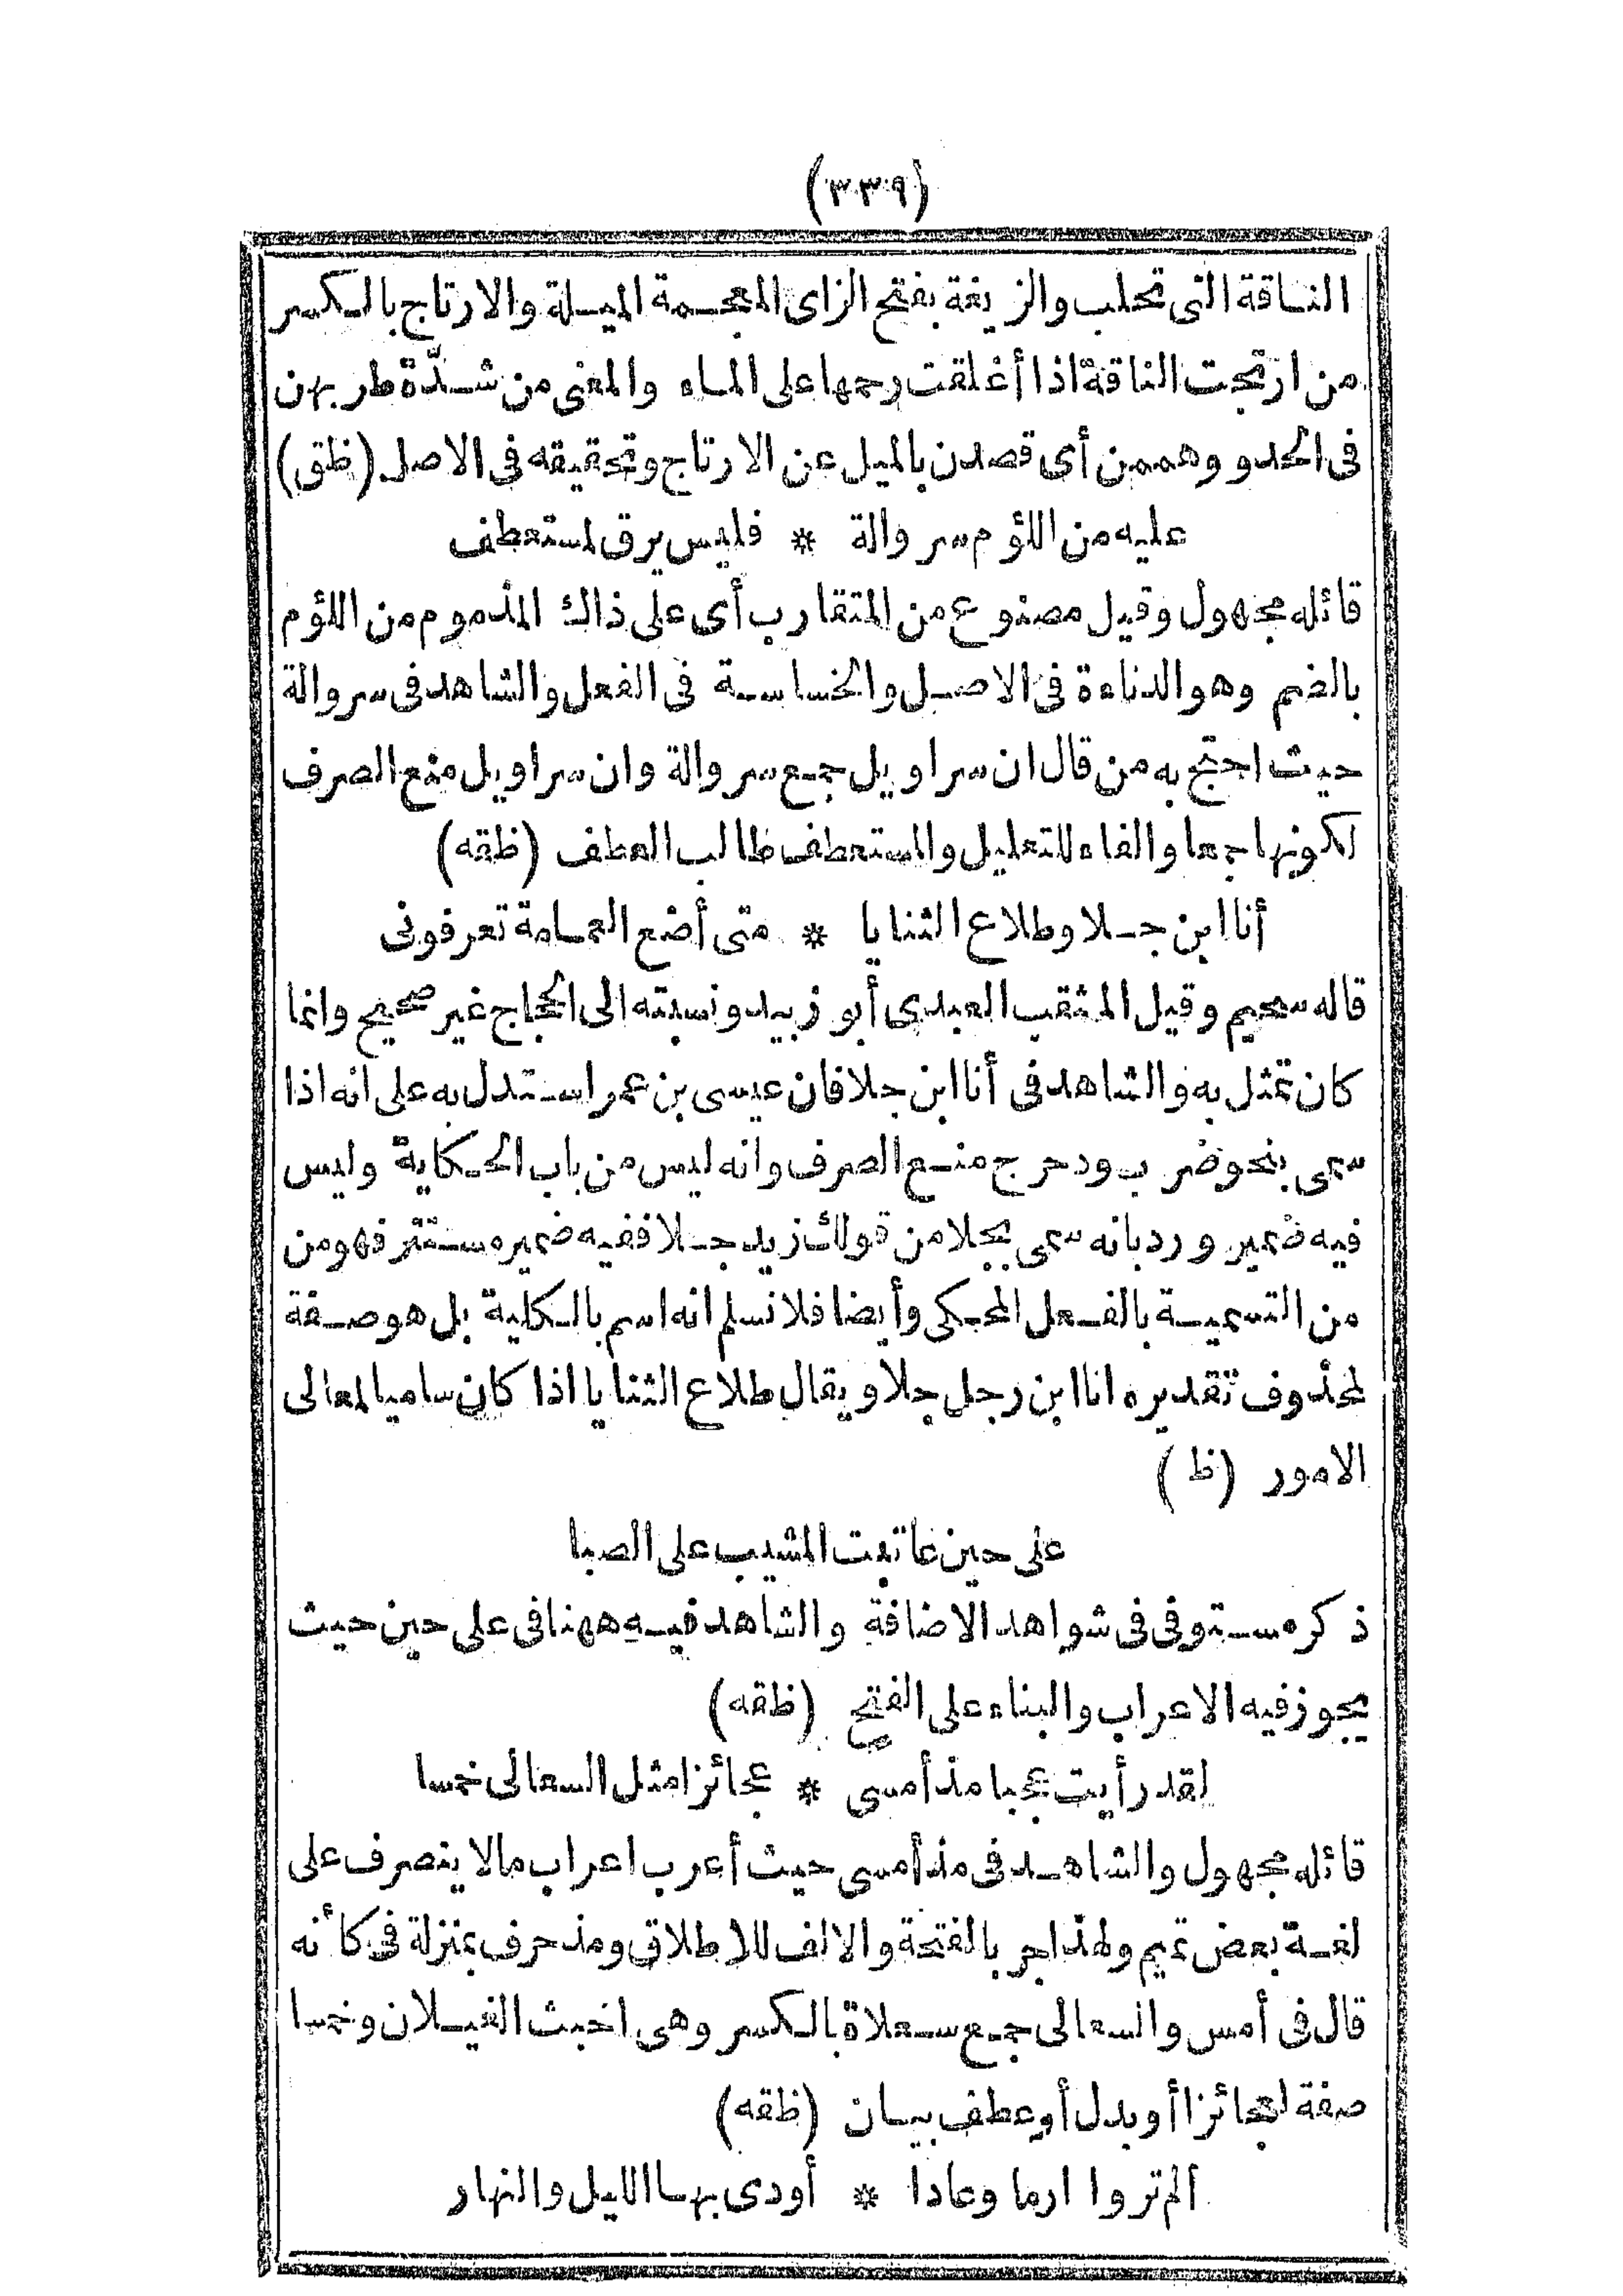 (٣٣٩)
الناقة التى تحلب والزيغة بفتح الزاى المعجمة الميلة والارتاج بالكسر
من ارتجت الناقة اذا أغلقت رحمها على الماء والمعنى من شدّة طربهن
فى الحدو وهممن أى قصدن بالميل عن الارتاج وتحقيقه فى الاصل (ظق)
عليه من اللؤم سروالة * فليس يرق لمستعطف
قائله مجهول وقيل مصنوع من المتقارب أى على ذاك المذموم من اللؤم
بالضم وهو الدناءة فى الاصل والخساسة فى الفعل والشاهد فى سروالة
حيث احتج به من قال ان سراويل جمع سروالة وان سراويل منع الصرف
لكونها جمعا والفاء للتعليل والمستعطف طالب العطف (ظقه)
أنا ابن جلا وطلاع الثنايا * متى أضع العمامة تعرفونى
قاله سحيم وقيل المثقب العبدى أبو زبيد ونسبته الى الحجاج غير صحيح وانما
كان تمثل به والشاهد فى أنا ابن جلا فان عيسى بن عمر استدل به على انه اذا
سمى بنحو ضرب ودحرج منع الصرف وانه ليس من باب الحكاية وليس
فيه ضمير ورد بانه سمى بجلا من قولك زيد جلا ففيه ضمير مستتر فهو من
من التسمية بالفعل المحكى وأيضا فلا نسلم انه اسم بالكلية بل هو صفة
لمحذوف تقديره انا ابن رجل جلا ويقال طلاع الثنايا اذا كان ساميا لمعالى
الامور (ظ)
على حين عاتبت المشيب على الصبا
ذكر مستوفى فى شواهد الاضافة والشاهد فيه ههنا فى على حين حيث
يجوز فيه الاعراب والبناء على الفتح (ظقه)
لقد رأيت عجبا مذ أمسى * عجائزا مثل السعالى خمسا
قائله مجهول والشاهد فى مذ أمسى حيث أعرب اعراب مالا ينصرف على
لغة بعض تميم ولهذا جر بالفتحة والالف للاطلاق ومذ حرف بمنزلة فى كأنه
قال فى أمس والسعالى جمع سعلاة بالكسر وهى اخبث الغيلان وخمسا
صفة لعجائزا أو بدل أو عطف بيان (ظقه)
ألم تروا ارما وعادا * أودى بها الليل والنهار